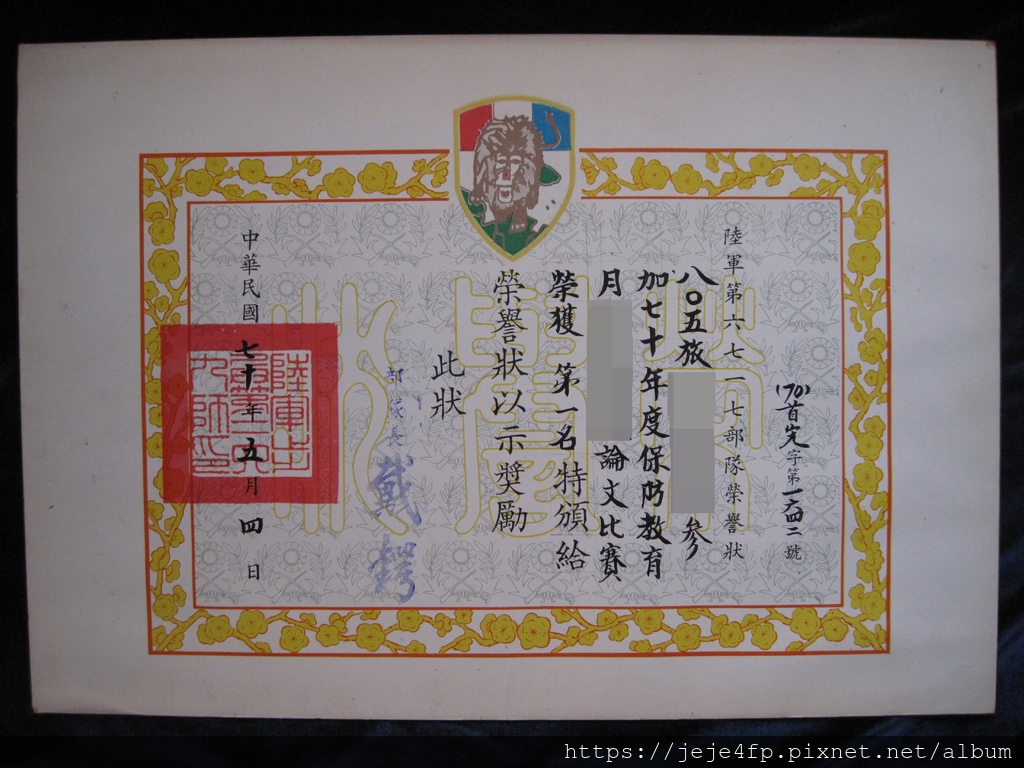 陸軍第六七一七部隊榮譽狀
(70)首先字第一六四二號
八〇五旅
參
加七十年度保防教育
月
論文比賽
榮獲 第一名特頒給
榮譽狀以示獎勵
此狀
部隊長 戴鍔
中華民國七十年五月四日
榮譽狀
https://jeje4fp.pixnet.net/album